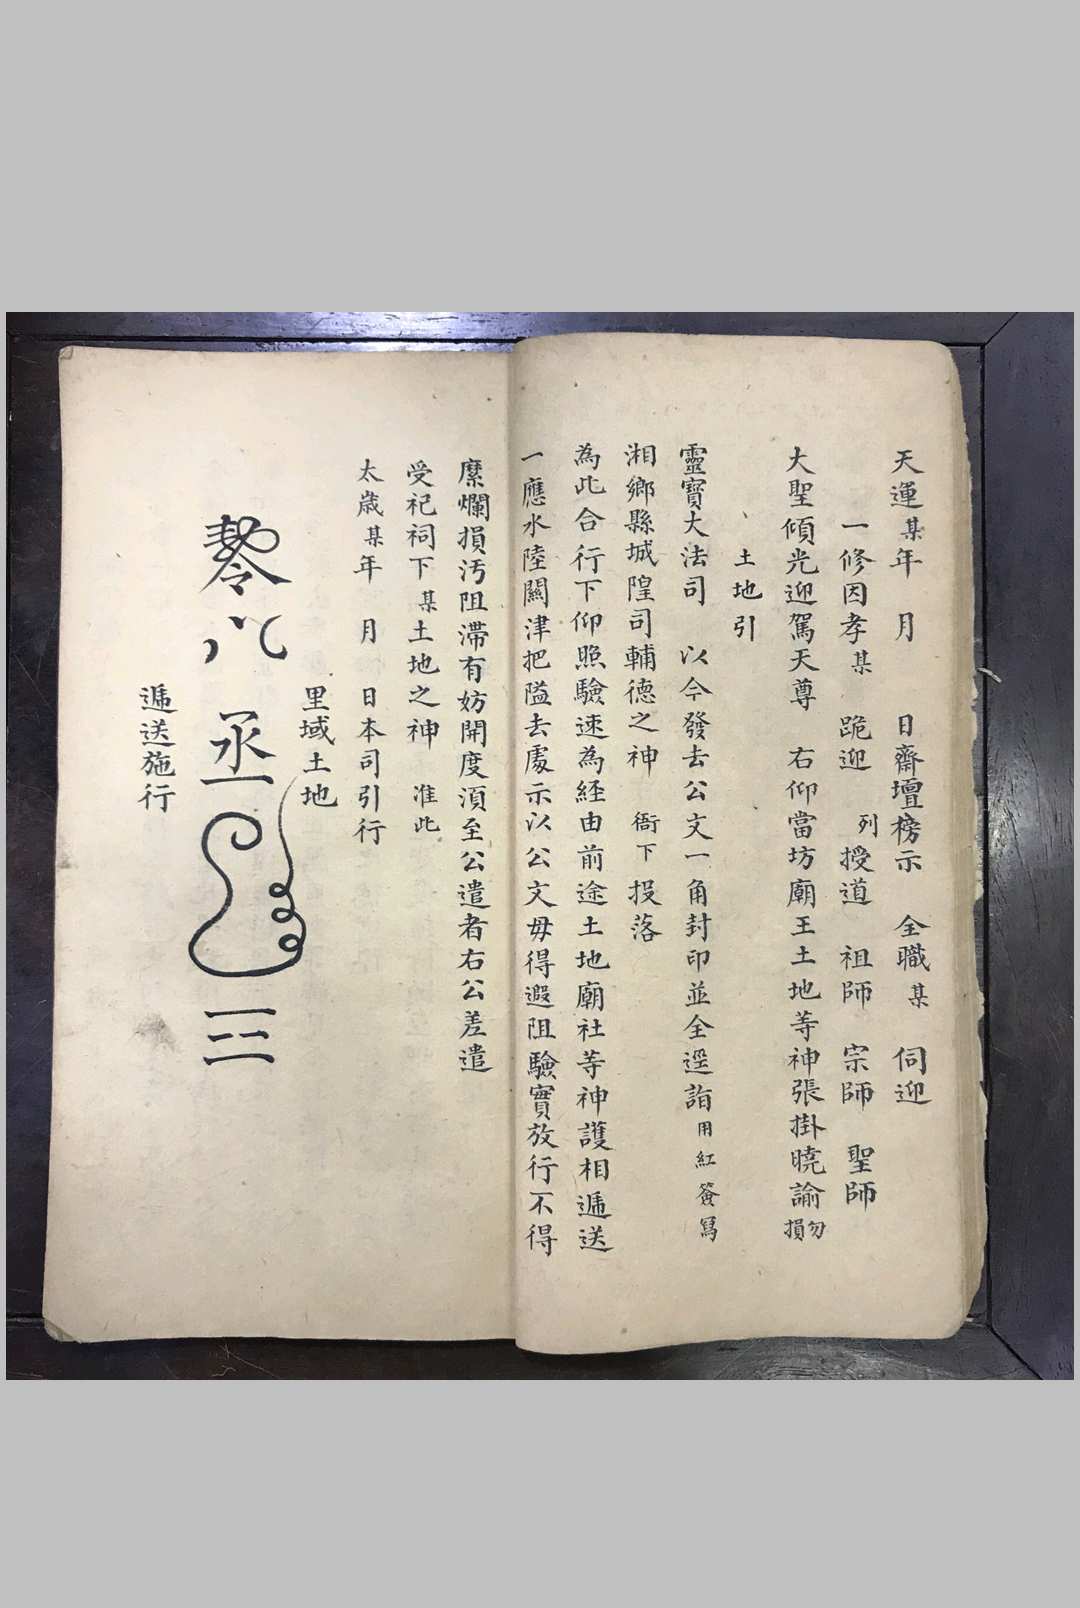 天運某年　月　日齋壇榜示　全職某　伺迎
一修因孝某　跪迎　列授道　祖師　宗師　聖師
大聖傾光迎駕天尊　右仰當坊廟王土地等神張掛曉諭勿損
土地引
靈寶大法司　以今發去公文一角封印並全逕詣用紅簽寫
湘鄉縣城隍司輔德之神　衙下　投落
為此合行下仰照驗速為経由前途土地廟社等神護相遞送
一應水陸關津把隘去處示以公文毋得遐阻驗實放行不得
縻爛損汚阻滯有妨開度湏至公遣者右公差遣
受祀祠下某土地之神　准此
太歲某年　月　日本司引行
里域土地
丞
三
遞送施行